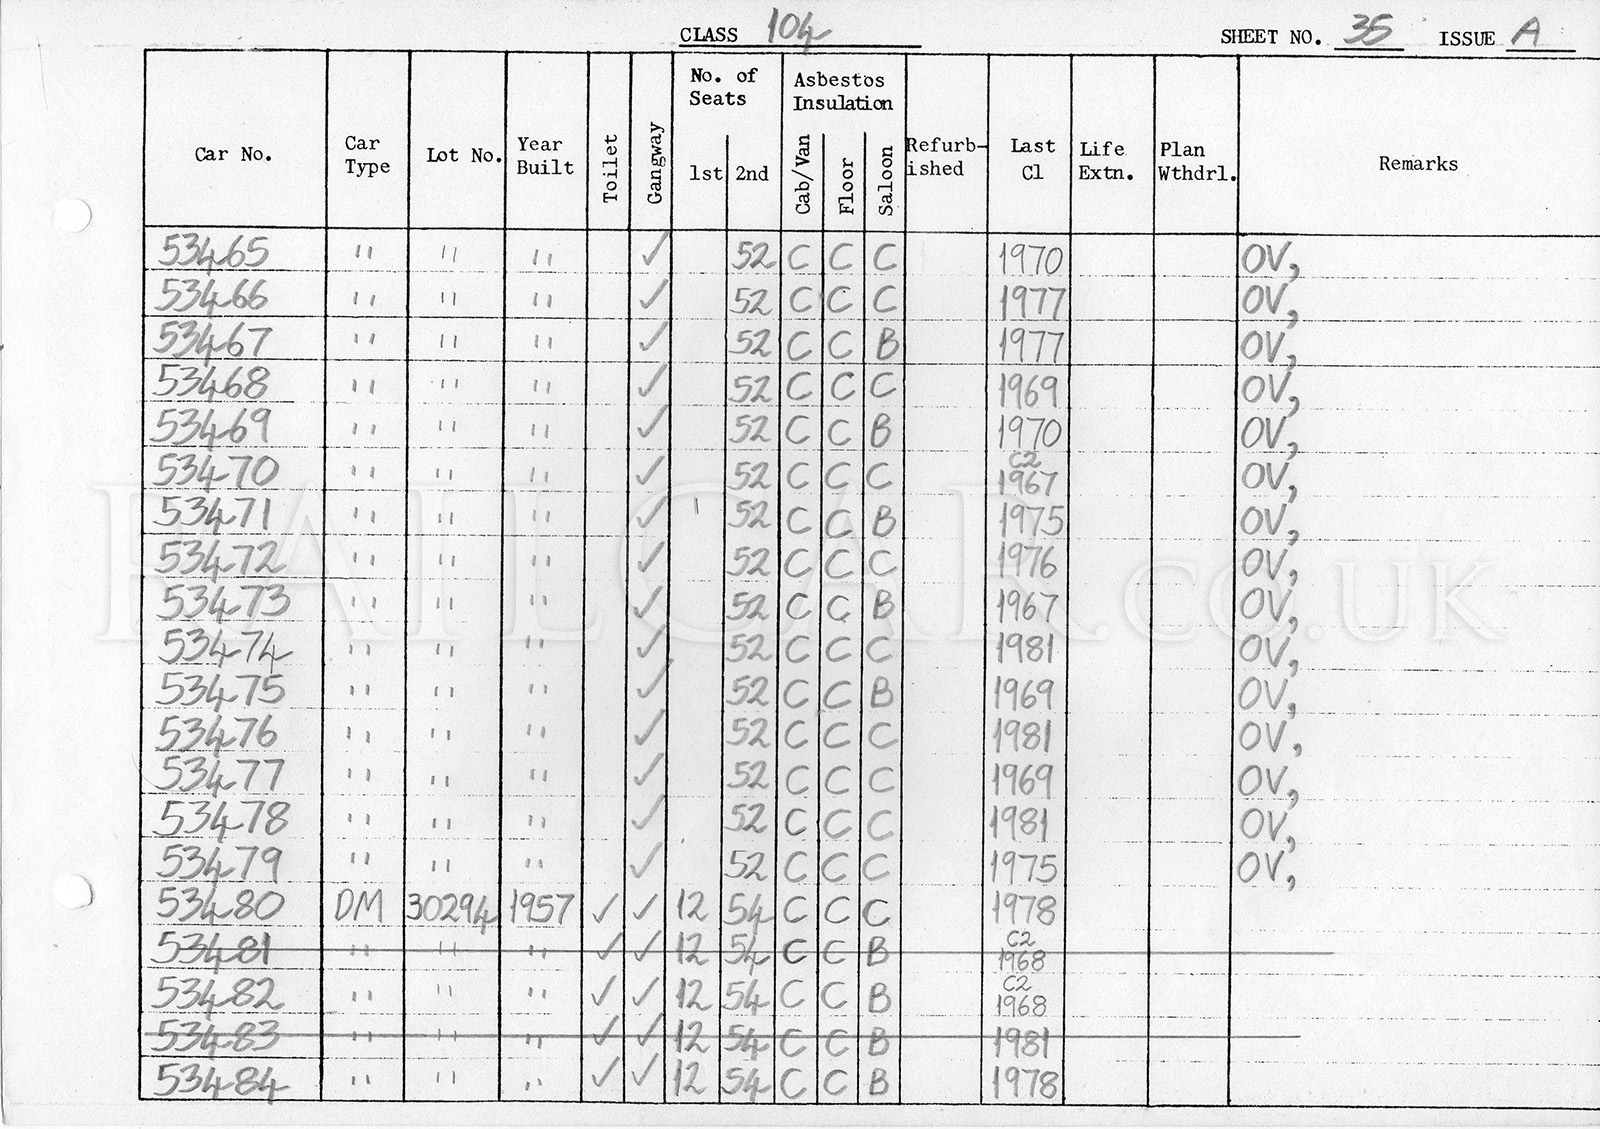 CLASS 104 SHEET NO. 35 ISSUE A
Car No. Car Type Lot No. Year Built Toilet Gangway No. of Seats 1st 2nd Asbestos Insulation Cab/Van Floor Saloon Refurb-ished Last Cl Life Extn. Plan Wthdrl. Remarks
53465 " " " ✓ 52 C C C 1970 OV,
53466 " " " ✓ 52 C C C 1977 OV,
53467 " " " ✓ 52 C C B 1977 OV,
53468 " " " ✓ 52 C C C 1969 OV,
53469 " " " ✓ 52 C C B 1970 OV,
53470 " " " ✓ 52 C C C C2 1967 OV,
53471 " " " ✓ 52 C C B 1975 OV,
53472 " " " ✓ 52 C C C 1976 OV,
53473 " " " ✓ 52 C C B 1967 OV,
53474 " " " ✓ 52 C C C 1981 OV,
53475 " " " ✓ 52 C C B 1969 OV,
53476 " " " ✓ 52 C C C 1981 OV,
53477 " " " ✓ 52 C C C 1969 OV,
53478 " " " ✓ 52 C C C 1981 OV,
53479 " " " ✓ 52 C C C 1975 OV,
53480 DM 30294 1957 ✓ ✓ 12 54 C C C 1978
53481 " " " ✓ ✓ 12 54 C C B C2 1968
53482 " " " ✓ ✓ 12 54 C C B C2 1968
53483 " " " ✓ ✓ 12 54 C C B 1981
53484 " " " ✓ ✓ 12 54 C C B 1978
RAILCAR.CO.UK